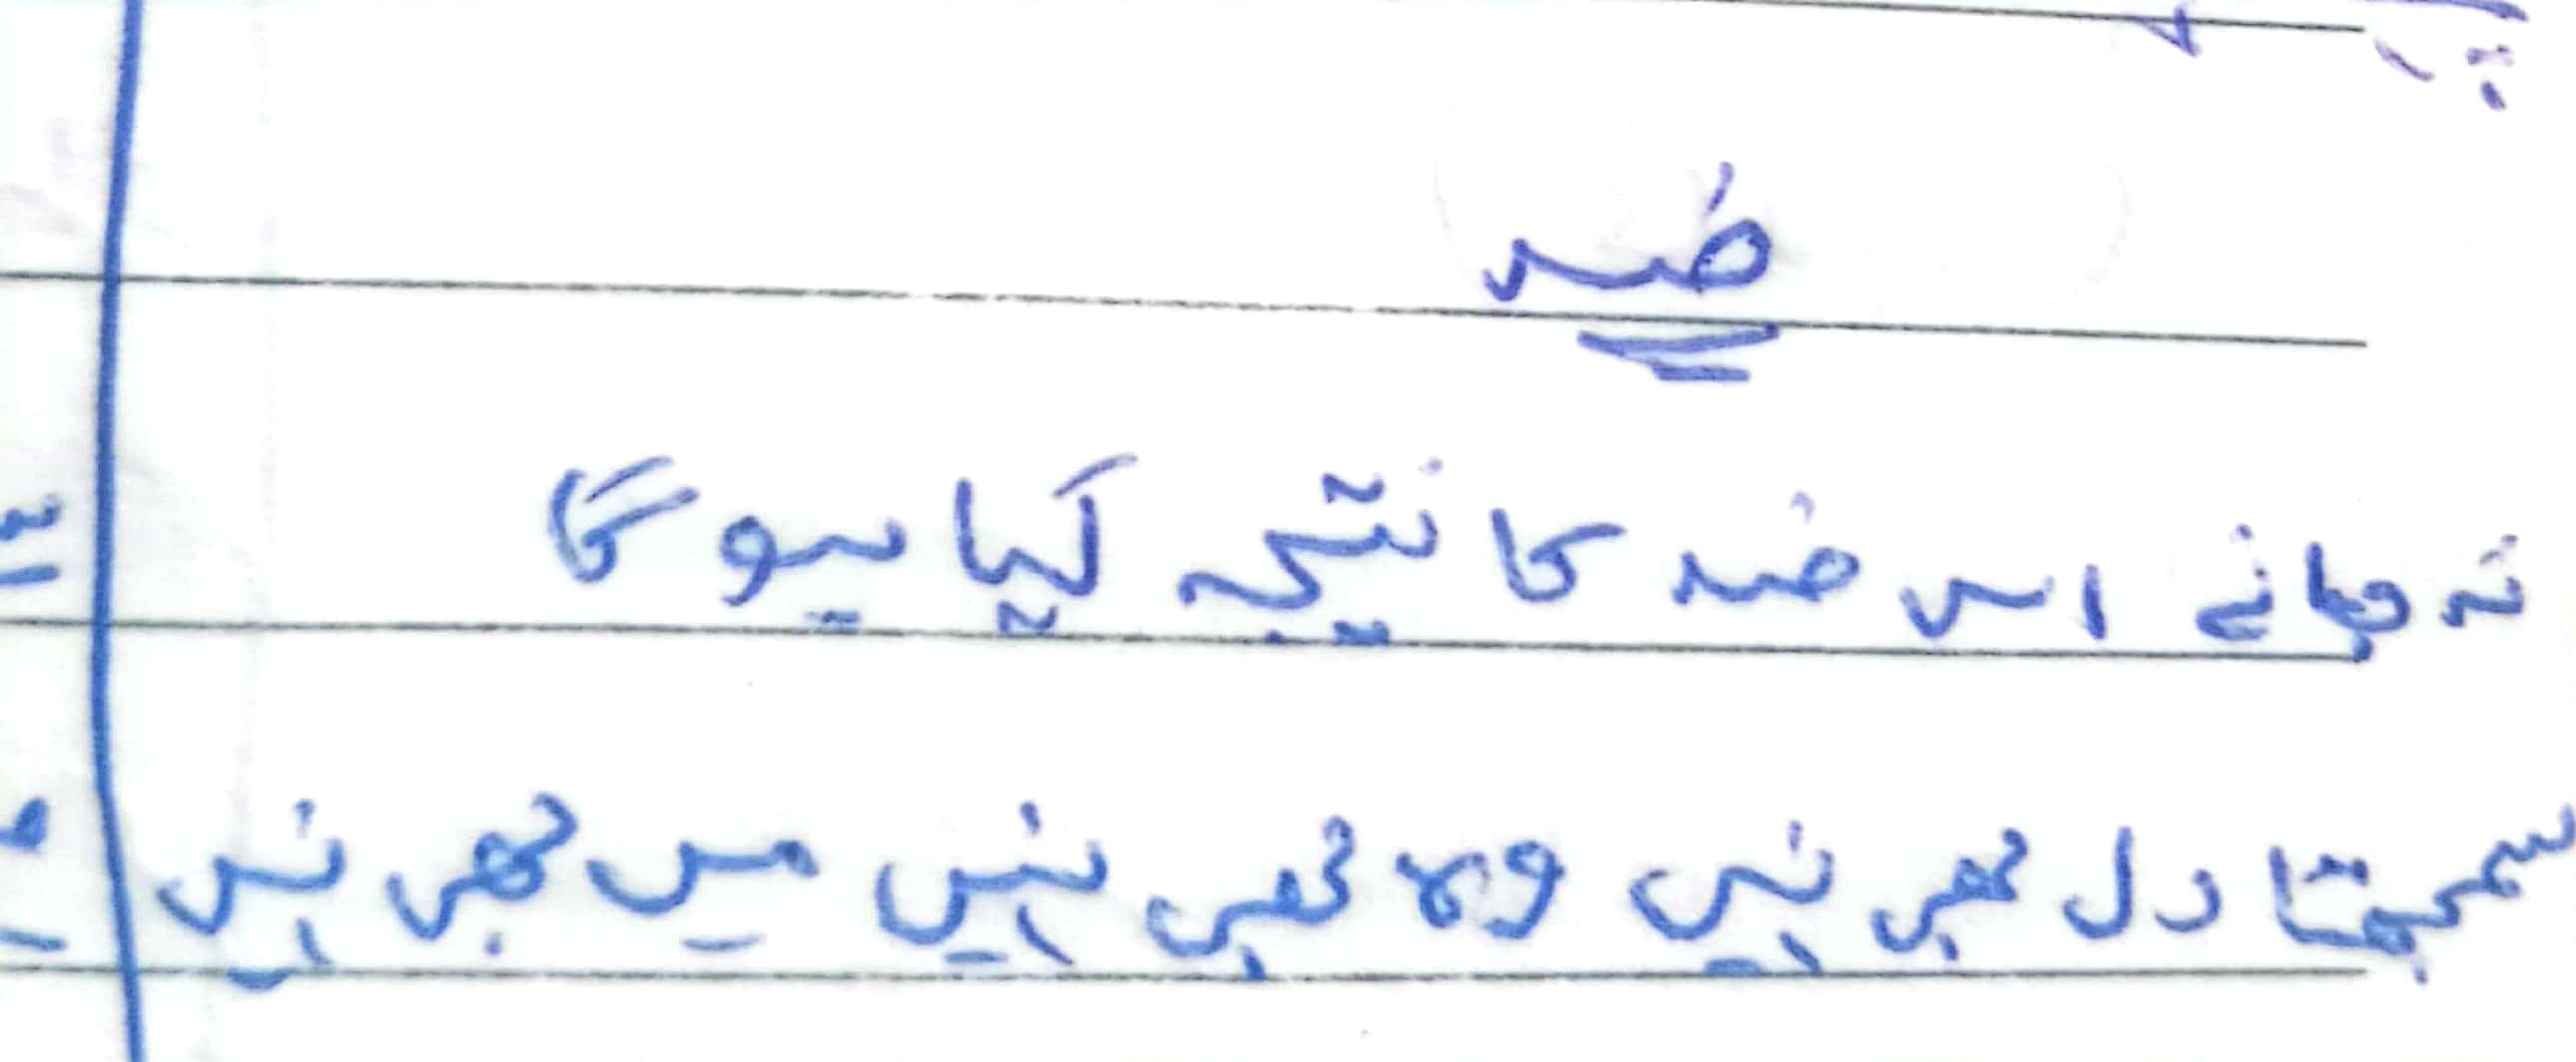 ضد
نہ جانے اس ضد کا نتیجہ کیا ہوگا
سمجھتا دل بھی نہیں وہ بھی نہیں میں بھی نہیں